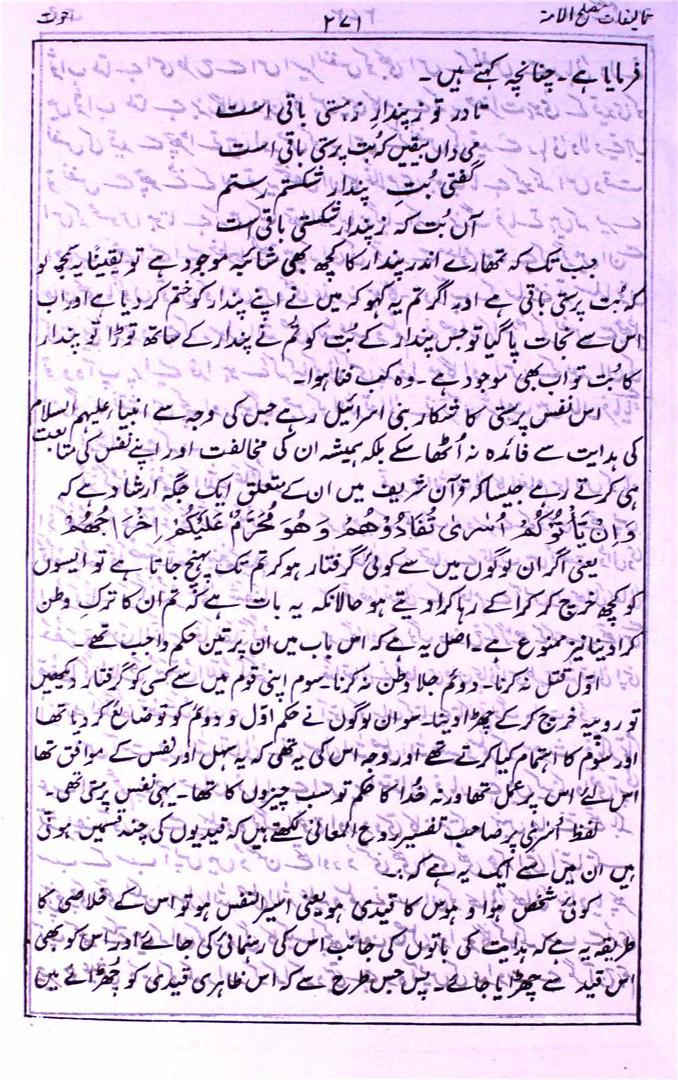 تالیفات مصلح الامۃ ۲۷۱ اخوت
فرمایا ہے۔ چنانچہ کہتے ہیں۔
تا در تو ز پندارِ ز ہستی باقی است
می داں بیقیں کہ بُت پرستی باقی است
گفتی بُتِ پندار شکستم رستم
آں بُت کہ ز پندار شکستی باقی است
جب تک کہ تمہارے اندر پندار کا کچھ بھی شائبہ موجود ہے تو یقیناً یہ سمجھ لو
کہ بُت پرستی باقی ہے اور اگر تم یہ کہو کہ میں نے اپنے پندار کو ختم کر دیا ہے اور اب
اس سے نجات پا گیا تو جس پندار کے بُت کو تم نے پندار کے ساتھ توڑا تو پندار
کا بُت تو اب بھی موجود ہے۔ وہ کب فنا ہوا۔
اس نفس پرستی کا شکار بنی اسرائیل رہے جس کی وجہ سے انبیاء علیہم السلام
کی ہدایت سے فائدہ نہ اُٹھا سکے بلکہ ہمیشہ ان کی مخالفت اور اپنے نفس کی متابعت
ہی کرتے رہے جیسا کہ قرآن شریف میں ان کے متعلق ایک جگہ ارشاد ہے کہ
وَاِنْ یَّاْتُوْکُمْ اُسٰرٰی تُفَادُوْھُمْ وَھُوَ مُحَرَّمٌ عَلَیْکُمْ اِخْرَاجُھُمْ
یعنی اگر ان لوگوں میں سے کوئی گرفتار ہو کر تم تک پہنچ جاتا ہے تو ایسوں
کو کچھ خرچ کر کرا کے رہا کرا دیتے ہو حالانکہ یہ بات ہے کہ تم ان کا ترکِ وطن
کرا دینا نیز ممنوع ہے۔ اصل یہ ہے کہ اس باب میں ان پر تین حکم واجب تھے۔
اوّل قتل نہ کرنا۔ دوئم جلا وطن نہ کرنا۔ سوم اپنی قوم میں سے کسی کو گرفتار دیکھیں
تو روپیہ خرچ کر کے چھڑا دینا۔ سو ان لوگوں نے حکم اوّل و دوئم کو تو ضائع کر دیا تھا
اور سوم کا اہتمام کیا کرتے تھے اور وجہ اس کی یہ تھی کہ یہ سہل اور نفس کے موافق تھا
اس لئے اس پر عمل تھا ورنہ خُدا کا حکم تو سب چیزوں کا تھا۔ یہی نفس پرستی تھی۔
لفظ اُسٰرٰی پر صاحب تفسیر روح المعانی لکھتے ہیں کہ قیدیوں کی چند قسمیں ہوتی
ہیں ان میں سے ایک یہ ہے کہ:۔
کوئی شخص ہوا و ہوس کا قیدی ہو یعنی اسیر النفس ہو تو اس کے خلاصی کا
طریقہ یہ ہے کہ ہدایت کی باتوں کی جانب اس کی رہنمائی کی جائے اور اس کو بھی
اس قید سے چھڑایا جائے۔ پس جس طرح سے کہ اس ظاہری قیدی کو چُھڑاتے ہیں